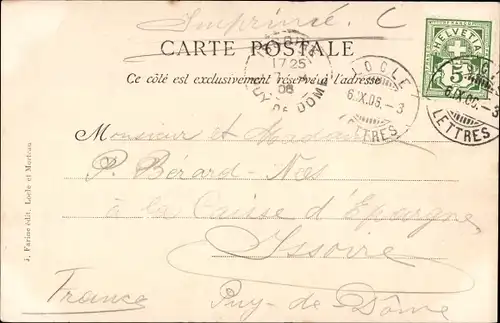 Imprimé.
CARTE POSTALE
Ce côté est exclusivement réservé à l'adresse
HELVETIA
5
17 25
06
PUY DE DOME
LOCLE
6.IX.06.-3
LETTRES
6.IX.06.-3
LETTRES
Monsieur et Madame
P. Bérard-Nees
à la Caisse d'Epargne
Issoire
France Puy-de-Dôme
J. Farine édit. Locle et Morteau